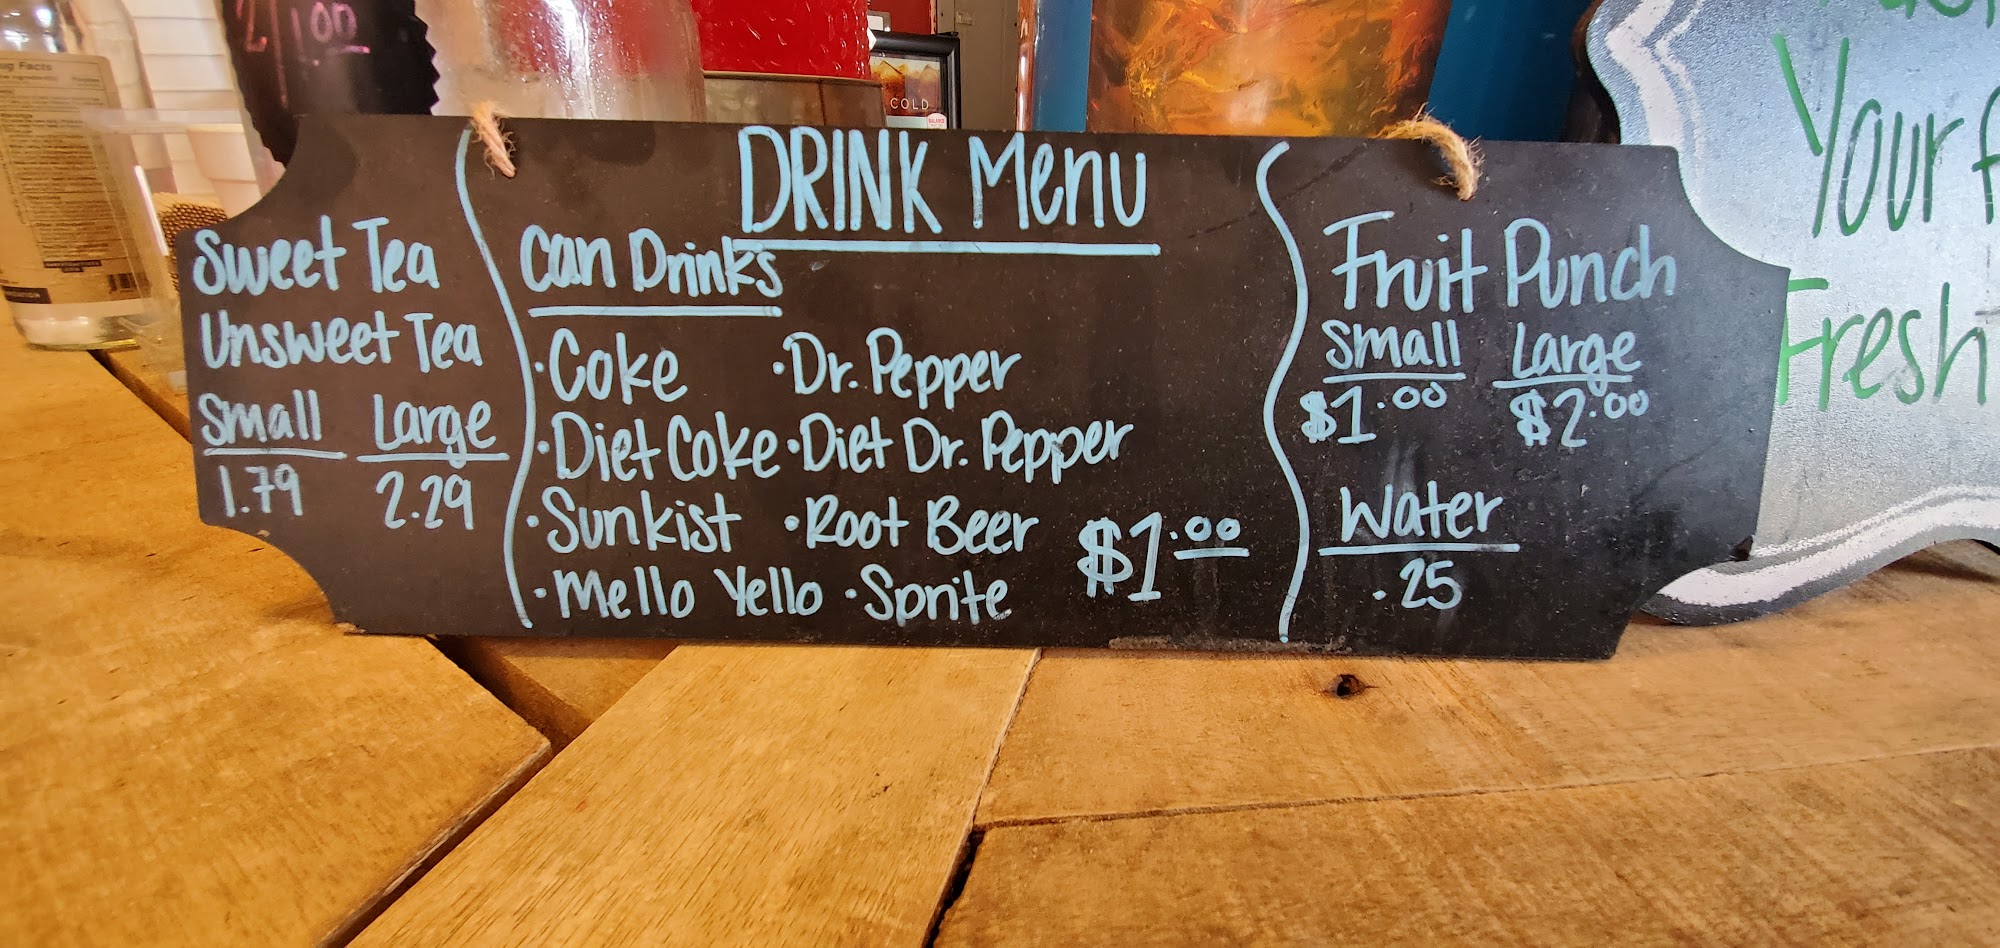 2/1.00
ug Facts
COLD
Your
Fresh
DRINK Menu
Sweet Tea
Unsweet Tea
Small Large
1.79 2.29
Can Drinks
·Coke ·Dr. Pepper
·Diet Coke ·Diet Dr. Pepper
·Sunkist ·Root Beer
·Mello Yello ·Sprite
$1.00
Fruit Punch
Small Large
$1.00 $2.00
Water
.25